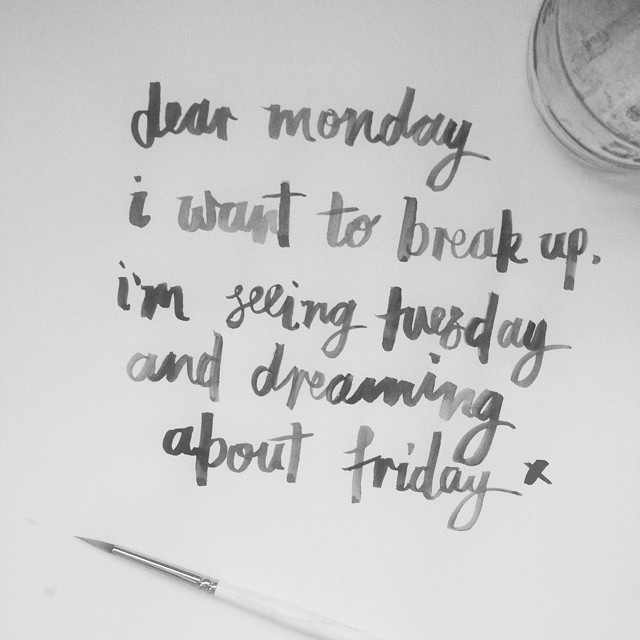 dear monday
i want to break up.
i'm seeing tuesday
and dreaming
about friday x